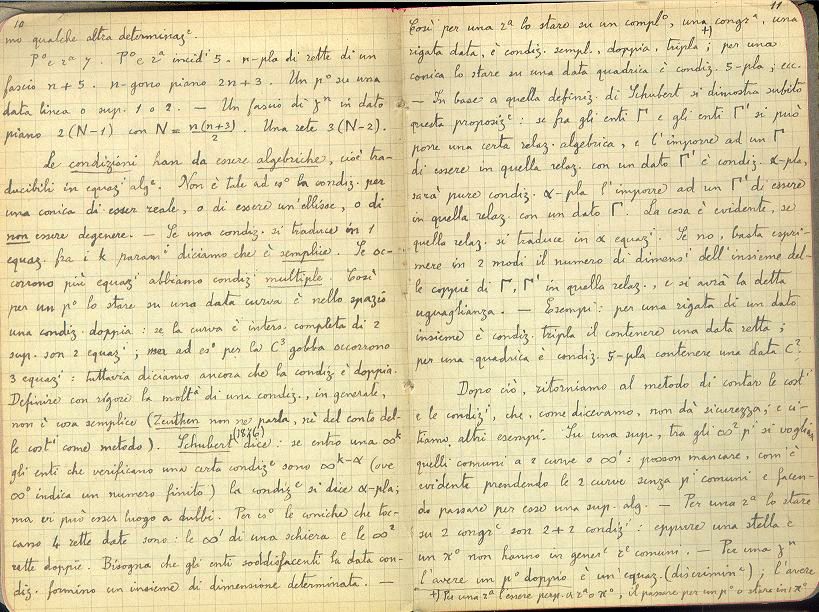 10
mo qualche altra determinaz.e
P.o e r.a 7. P.o e r.a incid.i 5. n-pla di rette di un
fascio n+5. n-gono piano 2n+3. Un p.o su una
data linea o sup. 1 o 2. — Un fascio di γⁿ in dato
piano 2(N-1) con N = n(n+3)/2. Una rete 3(N-2).
Le condizioni han da essere algebriche, cioè tra-
ducibili in equaz.i alg.e. Non è tale ad es.o la condiz. per
una conica di esser reale, o di essere un'ellisse, o di
non essere degenere. — Se una condiz. si traduce in 1
equaz. fra i k param.i diciamo che è semplice. Se oc-
corrono più equaz.i abbiamo condiz.i multiple. Così
per un p.o lo stare su una data curva è nello spazio
una condiz. doppia: se la curva è inters. completa di 2
sup. son 2 equaz.i; ma ad es.o per la C³ gobba occorrono
3 equaz.i: tuttavia diciamo ancora che la condiz. è doppia.
Definire con rigore la molt.à di una condiz., in generale,
non è cosa semplice (Zeuthen non ne parla, nè del conto del-
le cost.i come metodo). Schubert (1876) dice: se entro una ∞ᵏ
gli enti che verificano una certa condiz.e sono ∞ᵏ⁻ᵅ (ove
∞⁰ indica un numero finito) la condiz.e si dice α-pla;
ma vi può esser luogo a dubbi. Per es.o le coniche che toc-
cano 4 rette date sono: le ∞¹ di una schiera e le ∞²
rette doppie. Bisogna che gli enti soddisfacenti la data con-
diz. formino un insieme di dimensione determinata. —
11
Così per una r.a lo stare su un compl.o, una congr.a, una
rigata data, è condiz. sempl., doppia, tripla +); per una
conica lo stare su una data quadrica è condiz. 5-pla; ecc.
— In base a quella definiz. di Schubert si dimostra subito
questa proposiz.e: se fra gli enti Γ e gli enti Γ' si può
porre una certa relaz. algebrica, e l'imporre ad un Γ
di essere in quella relaz. con un dato Γ' è condiz. α-pla,
sarà pure condiz. α-pla l'imporre ad un Γ' di essere
in quella relaz. con un dato Γ. La cosa è evidente, se
quella relaz. si traduce in α equaz.i. Se no, basta espri-
mere in 2 modi il numero di dimens.i dell'insieme del-
le coppie di Γ, Γ' in quella relaz., e si avrà la detta
uguaglianza. — Esempi: per una rigata di un dato
insieme è condiz. tripla il contenere una data retta;
per una quadrica è condiz. 5-pla contenere una data C².
Dopo ciò, ritorniamo al metodo di contar le cost.i
e le condiz.i, che, come dicevamo, non dà sicurezza; e ci-
tiamo altri esempi. Su una sup., tra gli ∞² p.i si vogliano
quelli comuni a 2 curve o ∞¹: posson mancare, com'è
evidente prendendo le 2 curve senza p.i comuni e facen-
do passare per esse una sup. alg. — Per una r.a lo stare
su 2 congr.e son 2+2 condiz.i: eppure una stella e
un π.o non hanno in gener.e r.e comuni. — Per una γⁿ
l'avere un p.o doppio è un'equaz. (discrimin.e); l'avere
+) Per una r.a l'essere perp. a r.a o π.o, il passare per un p.o o stare in 1 π.o